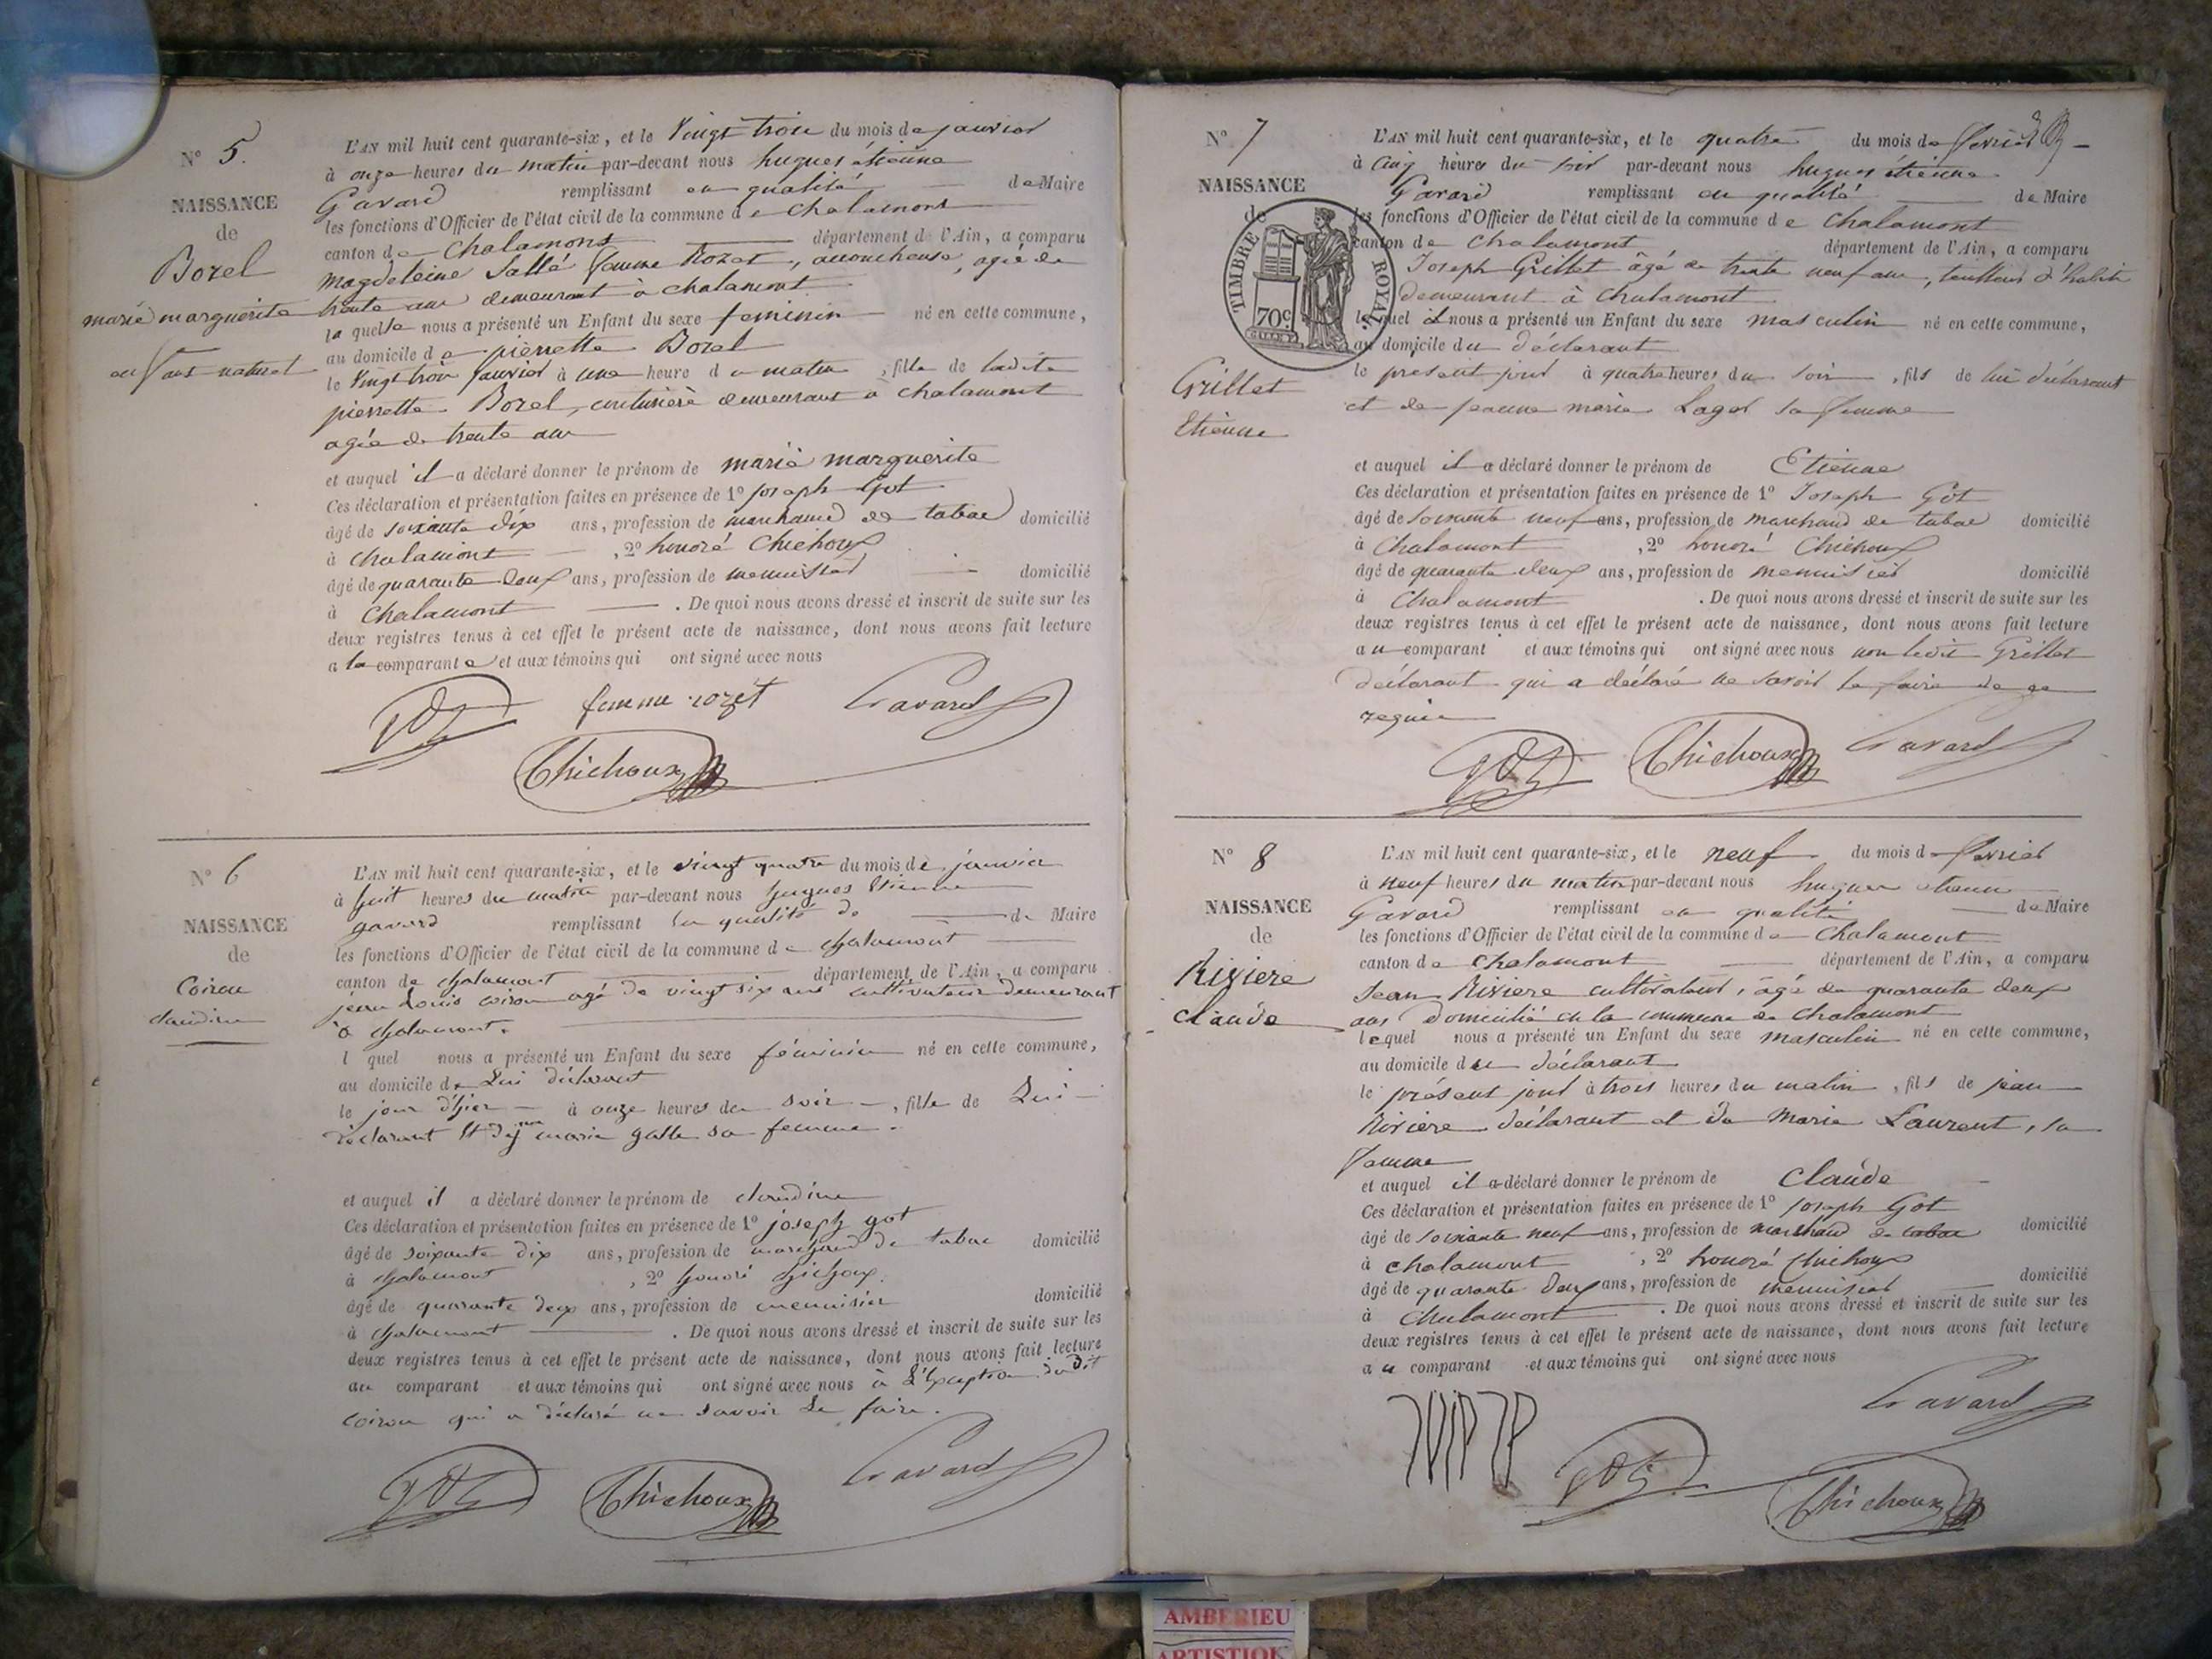 N° 5.
NAISSANCE
de
Borel
marie marguerite
enfant naturel
L'AN mil huit cent quarante-six, et le Vingt trois du mois de janvier
à onze heures du matin par-devant nous hugues étienne
Gavard remplissant en qualité de Maire
les fonctions d'Officier de l'état civil de la commune de Chalamont
canton de Chalamont département de l'Ain, a comparu
Magdeleine Sallé femme Rozet, accoucheuse, agée de
trente ans demeurant à chalamont
la quelle nous a présenté un Enfant du sexe feminin né en cette commune,
au domicile de pierrette Borel
le Vingt trois Janvier à une heure du matin, fille de ladite
pierrette Borel, couturière demeurant à chalamont
agée de trente ans
et auquel il a déclaré donner le prénom de marie marguerite
Ces déclaration et présentation faites en présence de 1° Joseph Got
âgé de soixante dix ans, profession de marchand de tabac domicilié
à Chalamont, 2° honoré Chichoux
âgé de quarante deux ans, profession de menuisier domicilié
à Chalamont. De quoi nous avons dressé et inscrit de suite sur les
deux registres tenus à cet effet le présent acte de naissance, dont nous avons fait lecture
a la comparante et aux témoins qui ont signé avec nous
Got femme rozet Gavard
Chichoux
N° 6
NAISSANCE
de
Coiron
claudine
L'AN mil huit cent quarante-six, et le vingt quatre du mois de janvier
à huit heures du matin par-devant nous hugues Etienne
gavard remplissant en qualité de de Maire
les fonctions d'Officier de l'état civil de la commune de chalamont
canton de chalamont département de l'Ain, a comparu
jean Louis coiron agé de vingt six ans cultivateur demeurant
à chalamont.
l quel nous a présenté un Enfant du sexe féminin né en cette commune,
au domicile de Lui déclarant
le jour d'hier à onze heures du soir, fille de Lui
déclarant Et de marie galle sa femme.
et auquel il a déclaré donner le prénom de claudine
Ces déclaration et présentation faites en présence de 1° joseph got
âgé de soixante dix ans, profession de marchand de tabac domicilié
à chalamont, 2° honoré chichoux.
âgé de quarante deux ans, profession de menuisier domicilié
à chalamont. De quoi nous avons dressé et inscrit de suite sur les
deux registres tenus à cet effet le présent acte de naissance, dont nous avons fait lecture
au comparant et aux témoins qui ont signé avec nous à L'Exception dudit
coiron qui a déclaré ne savoir Le faire.
Got Chichoux Gavard
N° 7
NAISSANCE
de
TIMBRE ROYAL
70c
Grillet
Etienne
L'AN mil huit cent quarante-six, et le quatre du mois de fevrier
à cinq heures du soir par-devant nous hugues étienne
Gavard remplissant en qualité de Maire
les fonctions d'Officier de l'état civil de la commune de Chalamont
canton de Chalamont département de l'Ain, a comparu
Joseph Grillet âgé de trente neuf ans, tailleur d'habits
demeurant à Chalamont
lequel il nous a présenté un Enfant du sexe masculin né en cette commune,
au domicile du déclarant
le présent jour à quatre heures du soir, fils de lui déclarant
et de jeanne marie Lager sa femme
et auquel il a déclaré donner le prénom de Etienne
Ces déclaration et présentation faites en présence de 1° Joseph Got
âgé de soixante neuf ans, profession de marchand de tabac domicilié
à Chalamont, 2° honoré Chichoux
âgé de quarante deux ans, profession de menuisier domicilié
à Chalamont. De quoi nous avons dressé et inscrit de suite sur les
deux registres tenus à cet effet le présent acte de naissance, dont nous avons fait lecture
au comparant et aux témoins qui ont signé avec nous non ledit Grillet
déclarant qui a déclaré ne savoir le faire de ce
requis
Got Chichoux Gavard
N° 8
NAISSANCE
de
Riviere
Claude
L'AN mil huit cent quarante-six, et le neuf du mois de fevrier
à neuf heures du matin par-devant nous hugues etienne
Gavard remplissant en qualité de Maire
les fonctions d'Officier de l'état civil de la commune de Chalamont
canton de Chalamont département de l'Ain, a comparu
Jean Riviere cultivateur, âgé de quarante deux
ans domicilié en la commune de Chalamont
lequel nous a présenté un Enfant du sexe masculin né en cette commune,
au domicile du déclarant
le présent jour à trois heures du matin, fils de jean
Riviere déclarant et de Marie Laurent, sa
femme
et auquel il a déclaré donner le prénom de Claude
Ces déclaration et présentation faites en présence de 1° Joseph Got
âgé de soixante neuf ans, profession de marchand de tabac domicilié
à chalamont, 2° honoré Chichoux
âgé de quarante deux ans, profession de menuisier domicilié
à Chalamont. De quoi nous avons dressé et inscrit de suite sur les
deux registres tenus à cet effet le présent acte de naissance, dont nous avons fait lecture
au comparant et aux témoins qui ont signé avec nous
Gavard
Got
Chichoux
AMBERIEU
ARTISTIQ